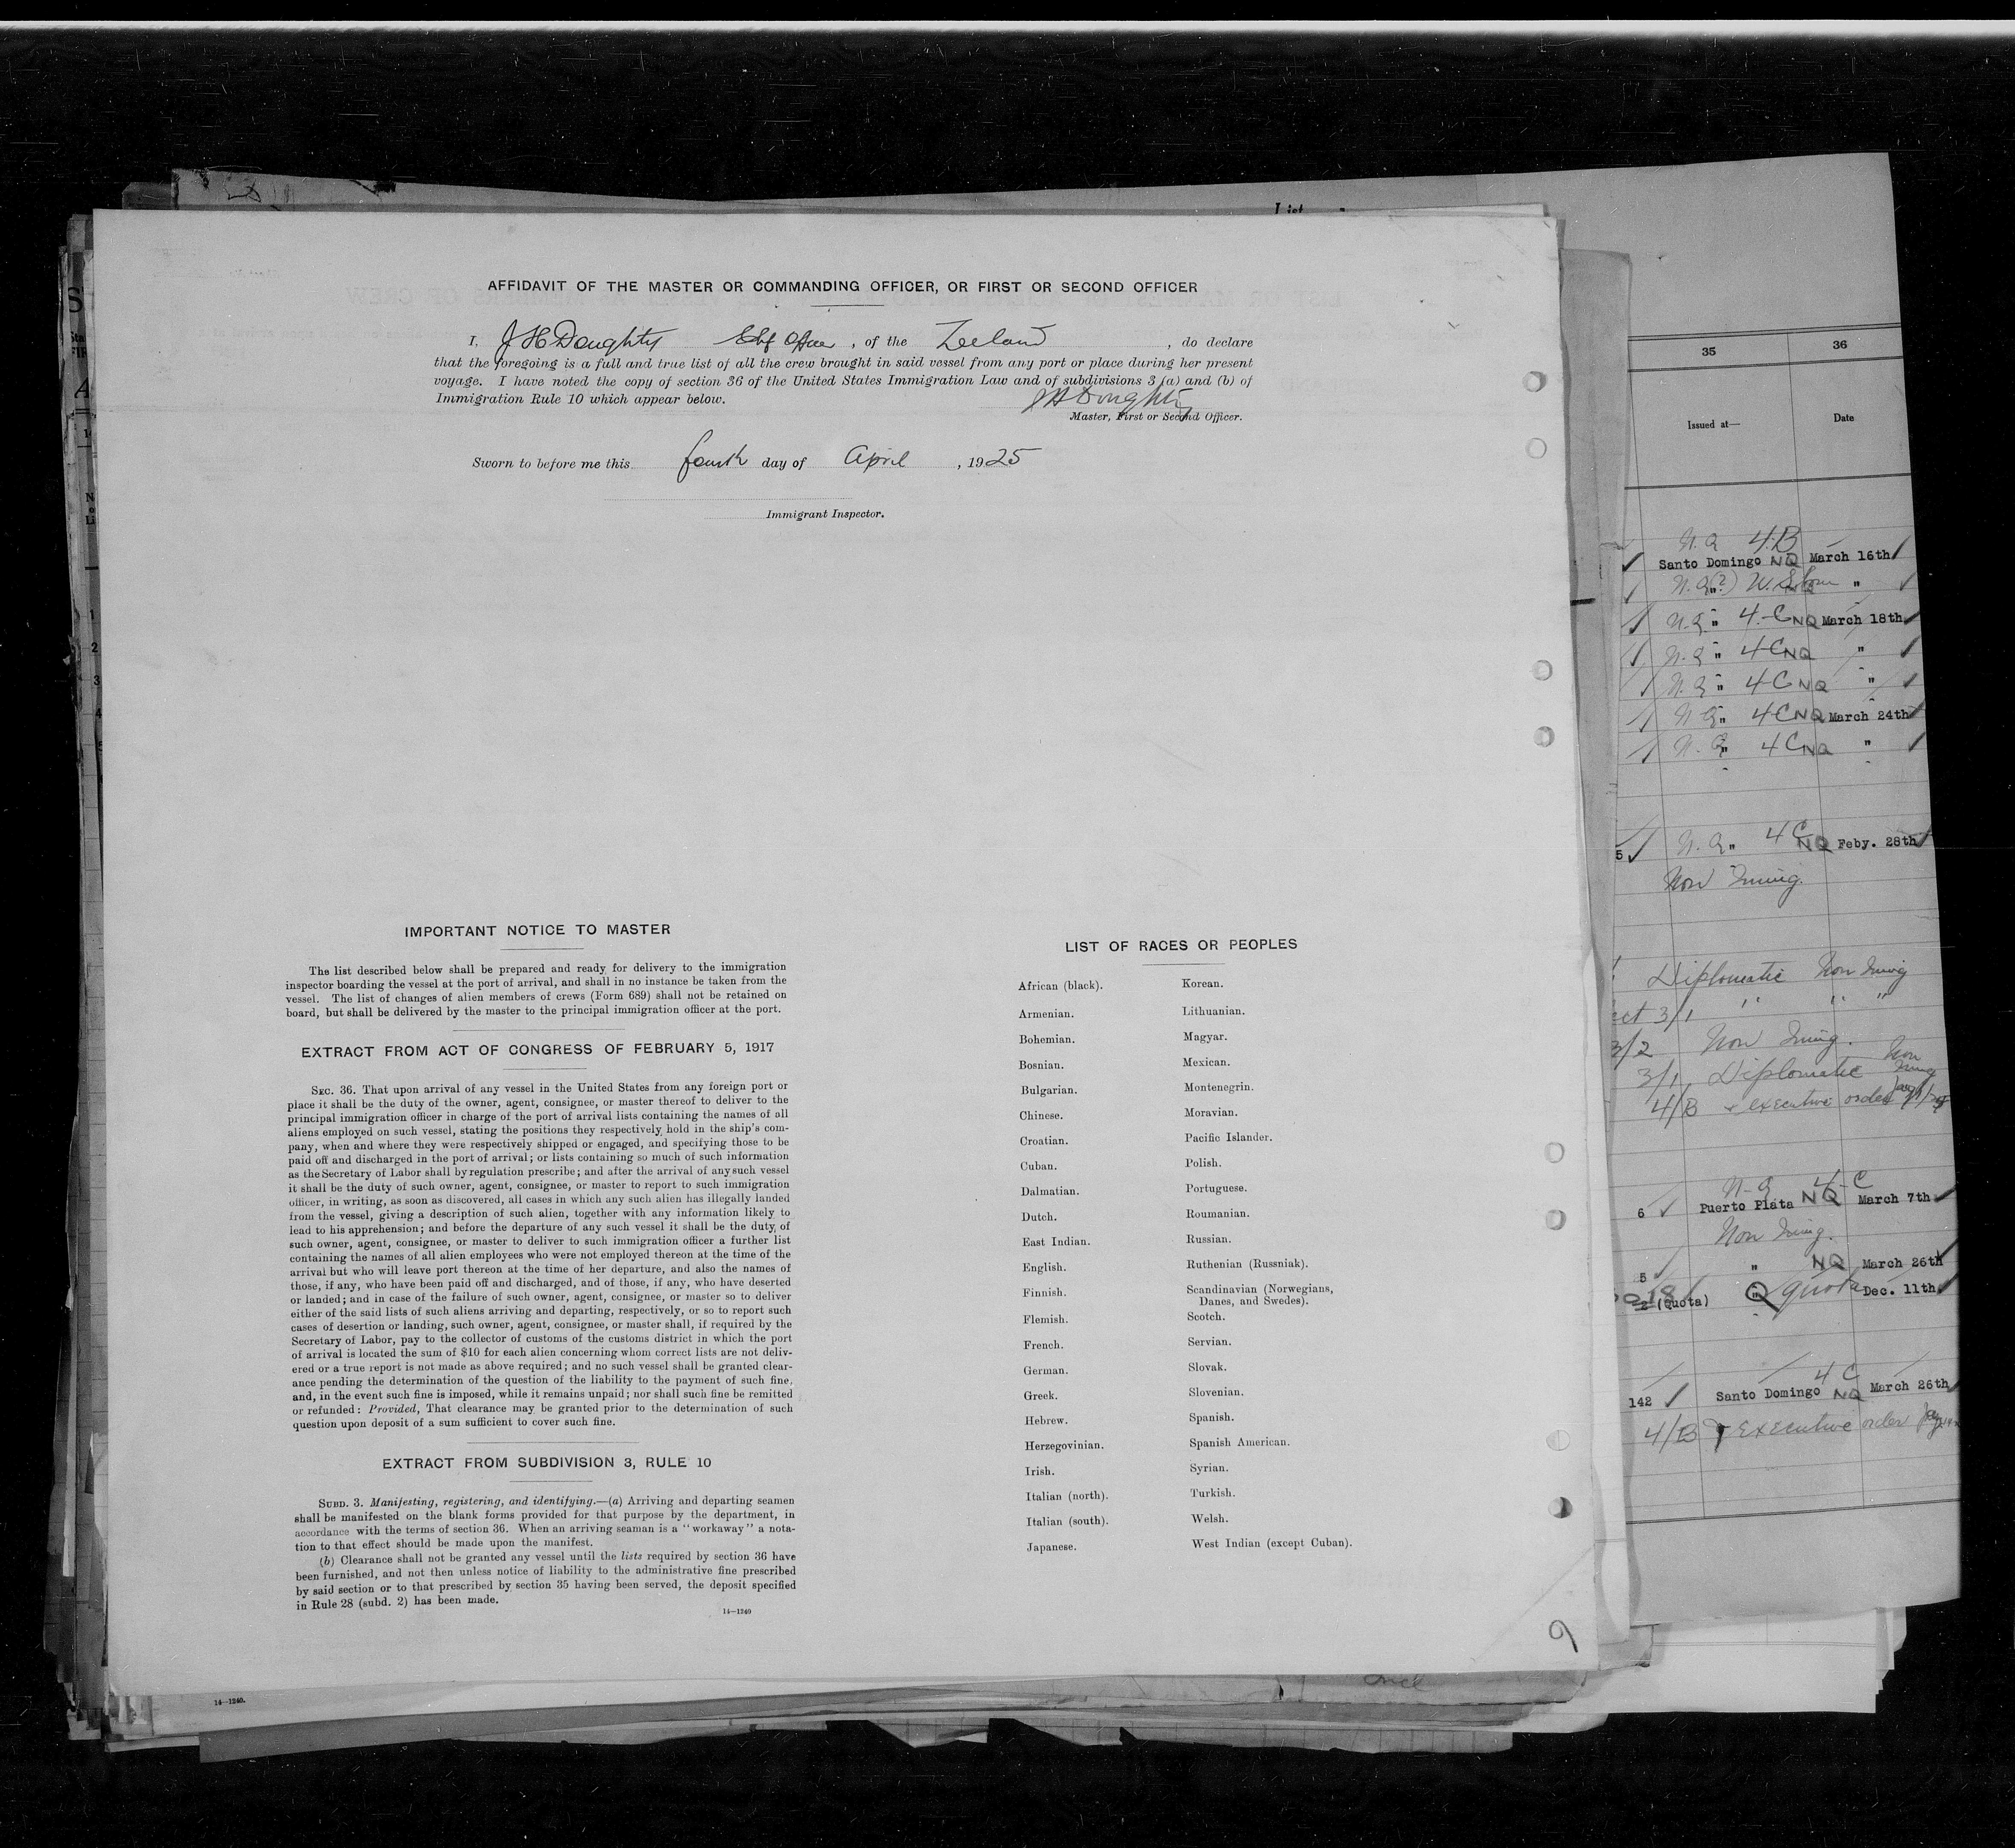 AFFIDAVIT OF THE MASTER OR COMMANDING OFFICER, OR FIRST OR SECOND OFFICER
I, J H Doughty Chf Officer, of the Zeeland, do declare
that the foregoing is a full and true list of all the crew brought in said vessel from any port or place during her present
voyage. I have noted the copy of section 36 of the United States Immigration Law and of subdivisions 3 (a) and (b) of
Immigration Rule 10 which appear below.
J H Doughty
Master, First or Second Officer.
Sworn to before me this fourth day of April, 1925
Immigrant Inspector.
IMPORTANT NOTICE TO MASTER
The list described below shall be prepared and ready for delivery to the immigration
inspector boarding the vessel at the port of arrival, and shall in no instance be taken from the
vessel. The list of changes of alien members of crews (Form 689) shall not be retained on
board, but shall be delivered by the master to the principal immigration officer at the port.
EXTRACT FROM ACT OF CONGRESS OF FEBRUARY 5, 1917
SEC. 36. That upon arrival of any vessel in the United States from any foreign port or
place it shall be the duty of the owner, agent, consignee, or master thereof to deliver to the
principal immigration officer in charge of the port of arrival lists containing the names of all
aliens employed on such vessel, stating the positions they respectively hold in the ship's com-
pany, when and where they were respectively shipped or engaged, and specifying those to be
paid off and discharged in the port of arrival; or lists containing so much of such information
as the Secretary of Labor shall by regulation prescribe; and after the arrival of any such vessel
it shall be the duty of such owner, agent, consignee, or master to report to such immigration
officer, in writing, as soon as discovered, all cases in which any such alien has illegally landed
from the vessel, giving a description of such alien, together with any information likely to
lead to his apprehension; and before the departure of any such vessel it shall be the duty of
such owner, agent, consignee, or master to deliver to such immigration officer a further list
containing the names of all alien employees who were not employed thereon at the time of the
arrival but who will leave port thereon at the time of her departure, and also the names of
those, if any, who have been paid off and discharged, and of those, if any, who have deserted
or landed; and in case of the failure of such owner, agent, consignee, or master so to deliver
either of the said lists of such aliens arriving and departing, respectively, or so to report such
cases of desertion or landing, such owner, agent, consignee, or master shall, if required by the
Secretary of Labor, pay to the collector of customs of the customs district in which the port
of arrival is located the sum of $10 for each alien concerning whom correct lists are not deliv-
ered or a true report is not made as above required; and no such vessel shall be granted clear-
ance pending the determination of the question of the liability to the payment of such fine,
and, in the event such fine is imposed, while it remains unpaid; nor shall such fine be remitted
or refunded: Provided, That clearance may be granted prior to the determination of such
question upon deposit of a sum sufficient to cover such fine.
EXTRACT FROM SUBDIVISION 3, RULE 10
SUBD. 3. Manifesting, registering, and identifying.—(a) Arriving and departing seamen
shall be manifested on the blank forms provided for that purpose by the department, in
accordance with the terms of section 36. When an arriving seaman is a "workaway" a nota-
tion to that effect should be made upon the manifest.
(b) Clearance shall not be granted any vessel until the lists required by section 36 have
been furnished, and not then unless notice of liability to the administrative fine prescribed
by said section or to that prescribed by section 35 having been served, the deposit specified
in Rule 28 (subd. 2) has been made.
14—1240
LIST OF RACES OR PEOPLES
African (black).
Armenian.
Bohemian.
Bosnian.
Bulgarian.
Chinese.
Croatian.
Cuban.
Dalmatian.
Dutch.
East Indian.
English.
Finnish.
Flemish.
French.
German.
Greek.
Hebrew.
Herzegovinian.
Irish.
Italian (north).
Italian (south).
Japanese.
Korean.
Lithuanian.
Magyar.
Mexican.
Montenegrin.
Moravian.
Pacific Islander.
Polish.
Portuguese.
Roumanian.
Russian.
Ruthenian (Russniak).
Scandinavian (Norwegians,
Danes, and Swedes).
Scotch.
Servian.
Slovak.
Slovenian.
Spanish.
Spanish American.
Syrian.
Turkish.
Welsh.
West Indian (except Cuban).
9
14—1240.
35 36
Issued at— Date
N.Q 4.B
Santo Domingo NQ March 16th
N.Q. " "
N.Q. " 4-C NQ March 18th
N.Q " 4C NQ "
N.Q " 4C NQ "
N Q " 4C NQ March 24th
N.Q " 4C NQ "
5 N.Q. " 4C NQ Feby. 28th
Non Immig.
Diplomatic Non Immig
3/1 " " "
3/2 Non Immig.
3/1 Diplomatic Non Immig
4/B + executive order
N-Q 4-C
6 Puerto Plata NQ March 7th
Non Immig.
5 " NQ March 26th
2 (Quota) " Q quota Dec. 11th
4 C
142 Santo Domingo NQ March 26th
4/B + executive order